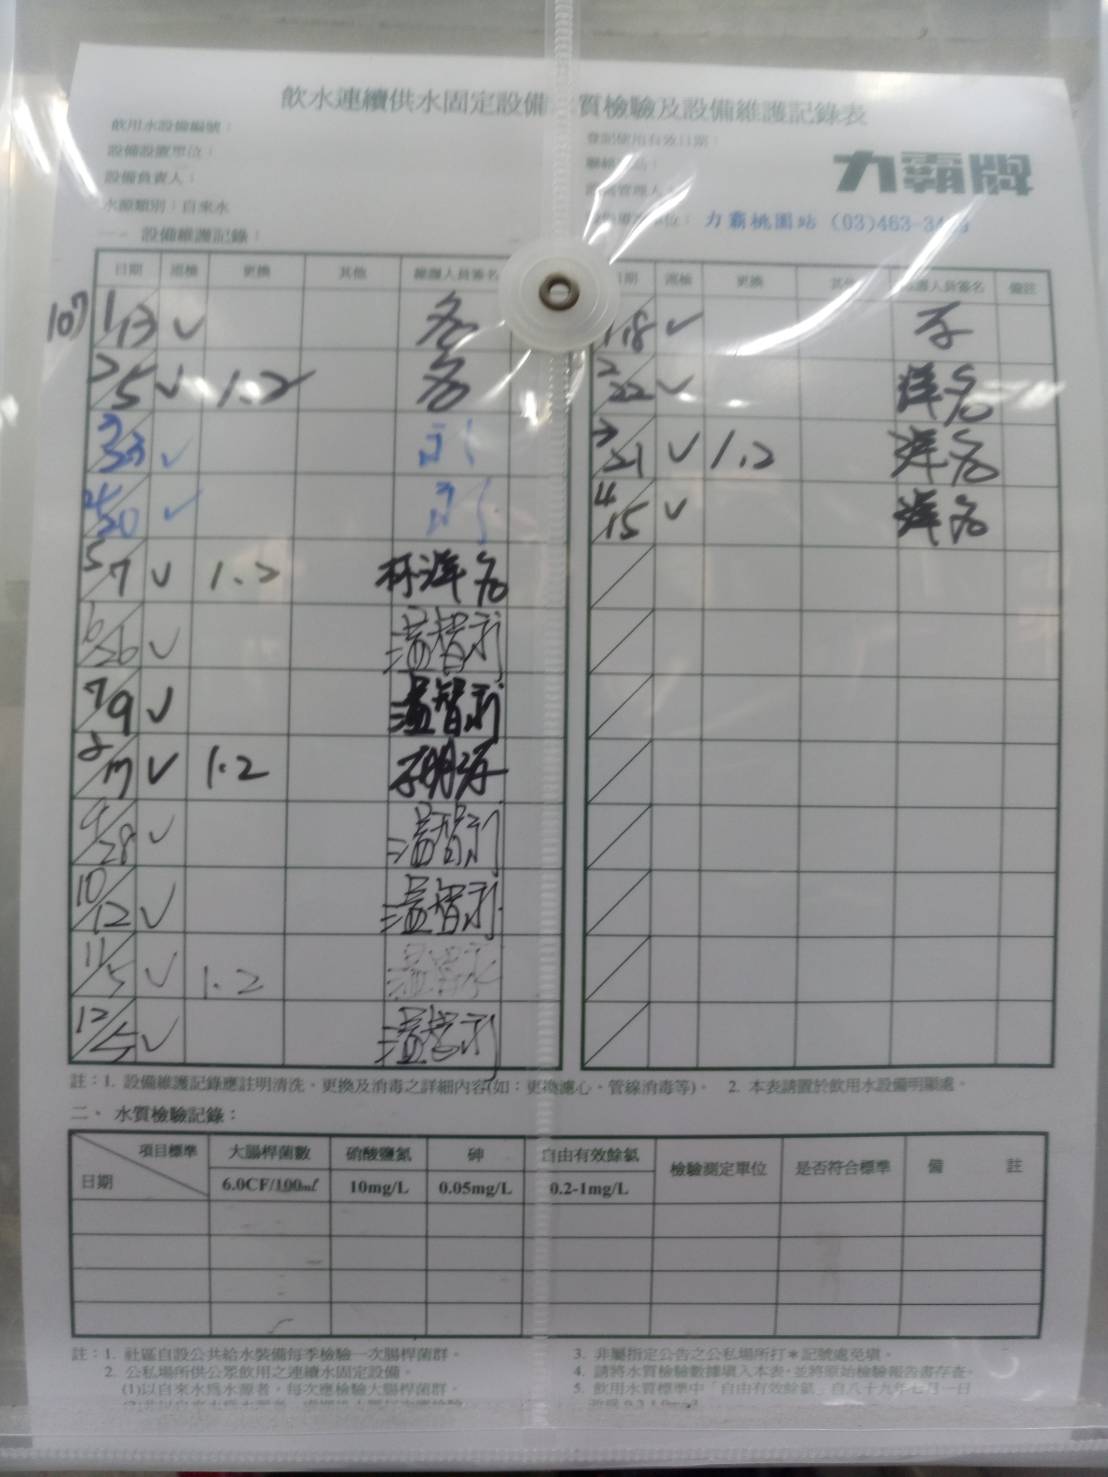 飲水連續供水固定設備 質檢驗及設備維護記錄表
飲用水設備編號：
設備設置單位：
設備負責人：
水源類別：自來水
登記使用有效日期：
力霸牌
力霸桃園站 (03)463-3
一、設備維護記錄：
日期 巡檢 更換 其他 維護人員簽名
期 巡檢 更換 其他 維護人員簽名 備註
107 1/13 ✓
1/18 ✓
2/5 ✓ 1.2
2/22 ✓ 洋名
3/23 ✓
3/21 ✓ 1.2 洋名
4/20 ✓
4/15 ✓ 洋名
5/7 ✓ 1.2 林洋名
6/26 ✓ 溫智利
7/9 ✓ 溫智利
8/17 ✓ 1.2
9/28 ✓ 溫智利
10/12 ✓ 溫智利
11/5 ✓ 1.2
12/5 ✓ 溫智利
註：1. 設備維護記錄應註明清洗、更換及消毒之詳細內容(如：更換濾心、管線消毒等)。 2. 本表請置於飲用水設備明顯處。
二、水質檢驗記錄：
項目標準 大腸桿菌數 硝酸鹽氮 砷 自由有效餘氯 檢驗測定單位 是否符合標準 備 註
日期 6.0CF/100mℓ 10mg/L 0.05mg/L 0.2-1mg/L
註：1. 社區自設公共給水裝備每季檢驗一次大腸桿菌群。
2. 公私場所供公眾飲用之連續水固定設備。
(1)以自來水為水源者，每次應檢驗大腸桿菌群。
3. 非屬指定公告之公私場所打＊記號處免填。
4. 請將水質檢驗數據填入本表，並將原始檢驗報告書存查。
5. 飲用水質標準中「自由有效餘氯」自八十九年七月一日